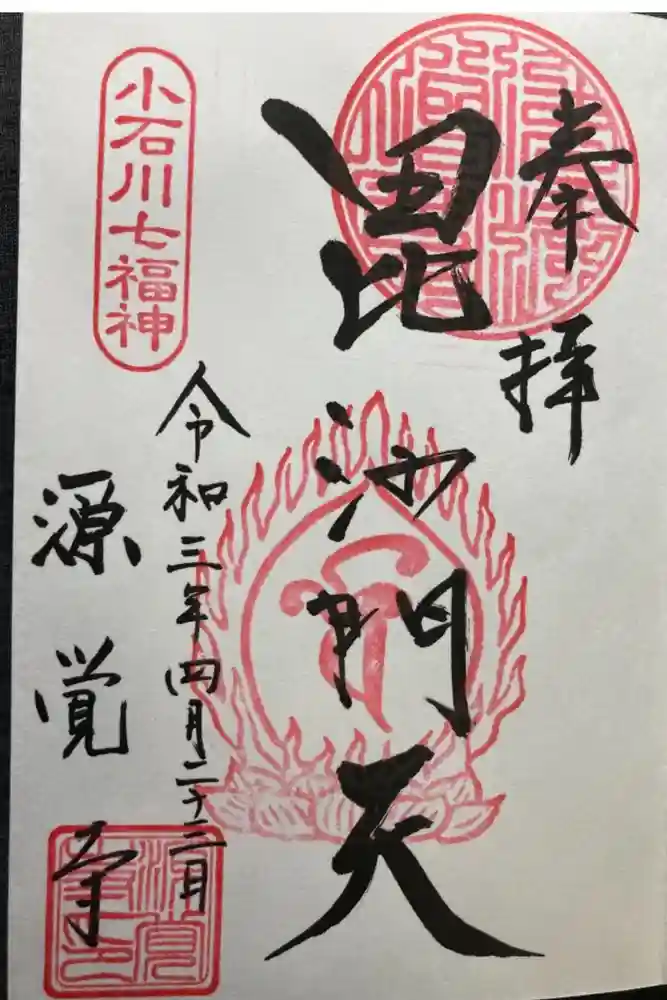 奉拝
毘沙門天
小石川七福神
令和三年四月二十三日
源覚寺